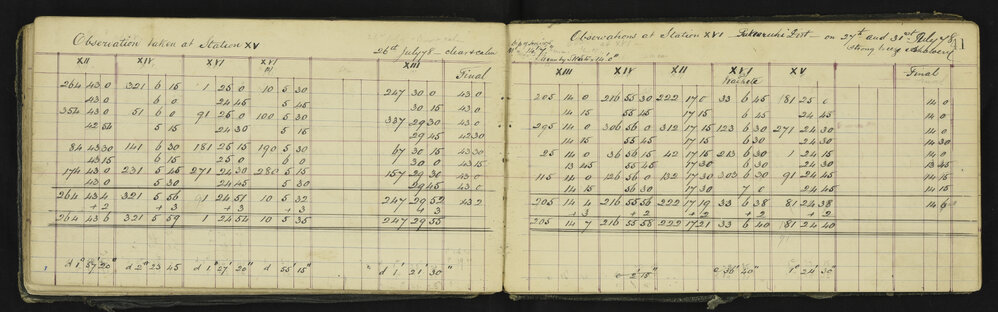 Observation taken at Station XV
26th July 78 - clear & calm
XII XIV XVI XVI XIII Final
264 43 0 321 6 15 1 25 0 10 5 30 247 30 0 43 0
43 0 6 0 24 45 5 45 30 15 43 0
354 43 0 51 6 0 91 25 0 100 5 30 337 29 30 43 0
42 54 5 15 24 30 5 15 29 45 42 30
84 43 30 141 6 30 181 25 15 190 5 30 67 30 15 43 30
43 15 6 15 25 0 6 0 30 0 43 15
174 43 0 231 5 45 271 24 30 280 5 15 157 29 30 43 0
43 0 5 30 24 45 5 30 29 45 43 0
264 43 4 321 5 56 91 24 51 10 5 32 247 29 52 43 2
+2 +3 +3 +3 +3
264 43 6 321 5 59 1 24 54 10 5 35 247 29 55
d 1° 57' 20" d 2° 23 45 d 1° 27' 20" d 55' 15" d 1° 21' 30"
Observations at Station XVI - on 27th and 31st July 78
11
XIII XIV XII XVI XV Final
205 14 0 216 55 30 222 17 0 33 6 45 181 25 0 14 0
14 15 55 45 17 15 6 45 24 45 14 0
295 14 0 306 56 0 312 17 15 123 6 30 271 24 30 14 0
14 15 55 45 17 15 6 30 24 30 14 30
25 14 0 36 56 15 42 17 15 213 6 30 1 24 15 14 0
13 45 55 45 17 30 6 30 24 30 13 45
115 14 0 126 56 0 132 17 30 303 6 30 91 24 45 14 15
14 15 56 30 17 30 7 0 24 45 14 15
205 14 4 216 55 56 222 17 19 33 6 38 81 24 38 14 6
+3 +2 +2 +2 +2
205 14 7 216 55 58 222 17 21 33 6 40 81 24 40
e 2' 15" e 36' 40" 1° 24' 30"